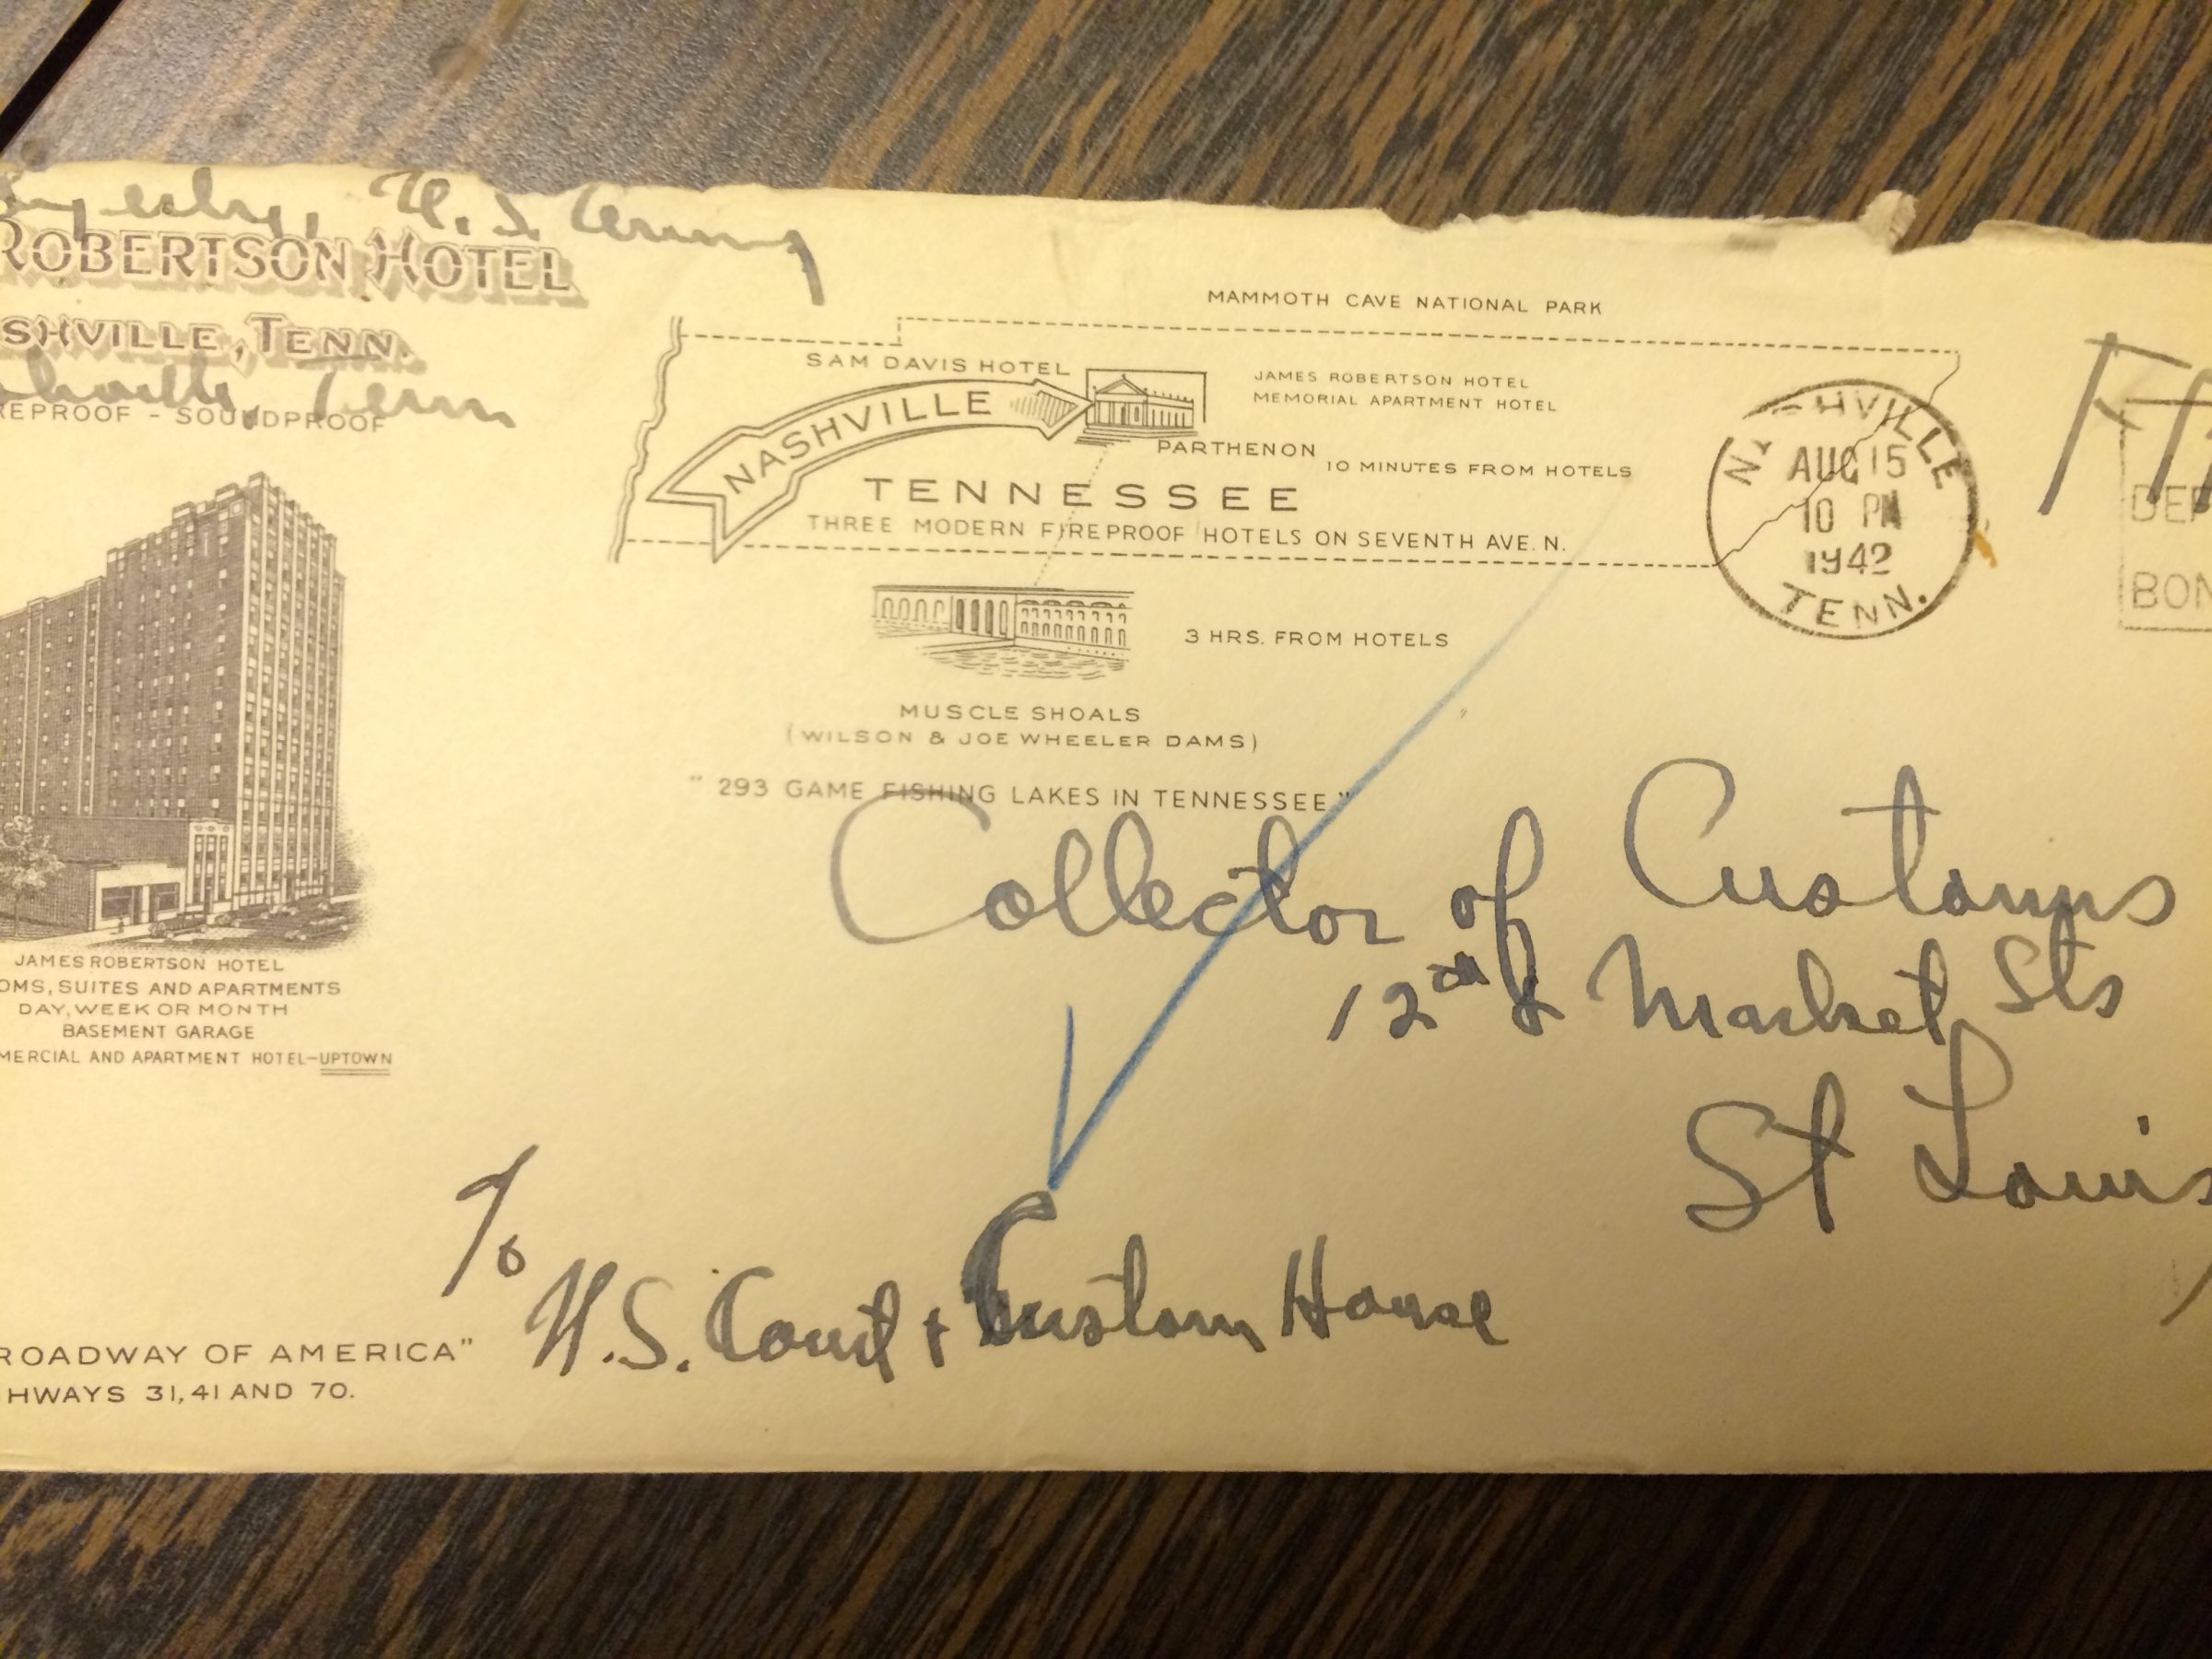 U. S. Army
ROBERTSON HOTEL
SHVILLE, TENN.
Tenn
REPROOF - SOUNDPROOF
MAMMOTH CAVE NATIONAL PARK
SAM DAVIS HOTEL
JAMES ROBERTSON HOTEL
MEMORIAL APARTMENT HOTEL
NASHVILLE
PARTHENON
10 MINUTES FROM HOTELS
TENNESSEE
THREE MODERN FIREPROOF HOTELS ON SEVENTH AVE. N.
3 HRS. FROM HOTELS
MUSCLE SHOALS
(WILSON & JOE WHEELER DAMS)
" 293 GAME FISHING LAKES IN TENNESSEE "
NASHVILLE
AUG 15
10 PM
1942
TENN.
DEF
BON
Collector of Customs
12th & Market Sts
St Louis
JAMES ROBERTSON HOTEL
OMS, SUITES AND APARTMENTS
DAY, WEEK OR MONTH
BASEMENT GARAGE
MERCIAL AND APARTMENT HOTEL-UPTOWN
To
U.S. Court + Custom House
ROADWAY OF AMERICA"
HWAYS 31, 41 AND 70.